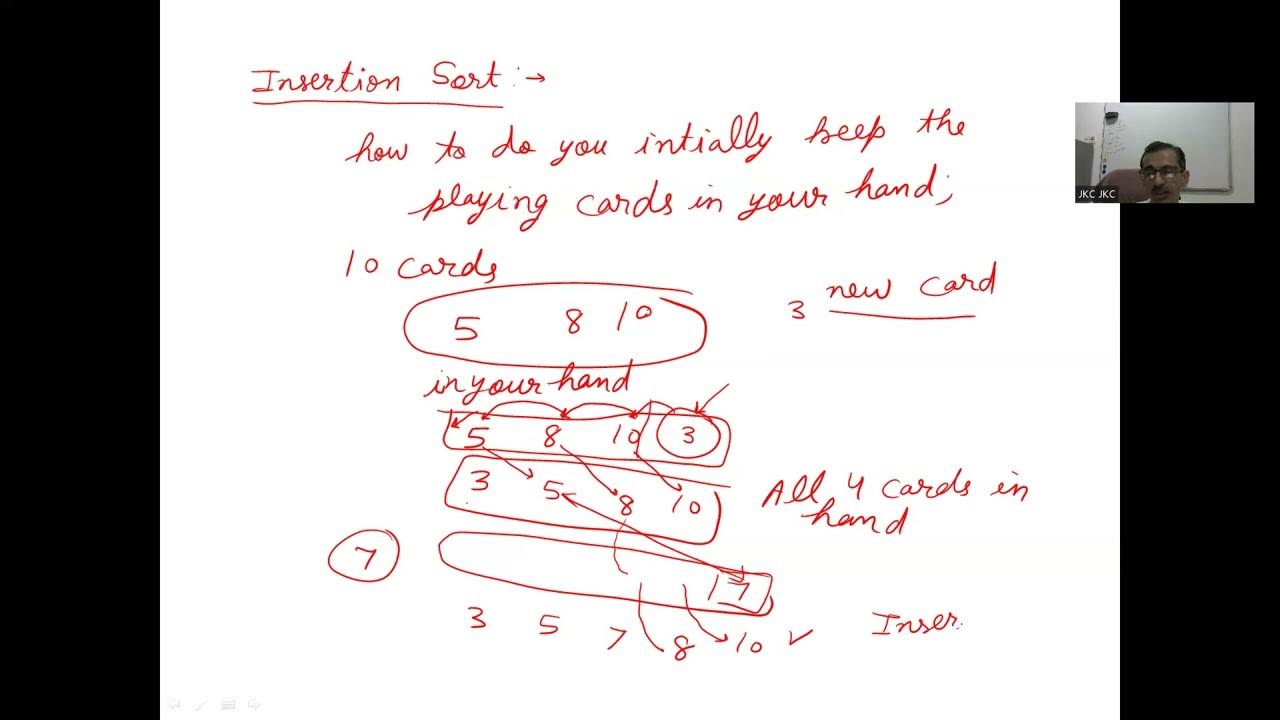 Insertion Sort :→
how to do you intially keep the
playing cards in your hand;
10 cards
3 new card
5 8 10
in your hand
5 8 10 3
3 5 8 10
All 4 cards in
hand
7
7
3 5 7 8 10 ✓
Inser
JKC JKC